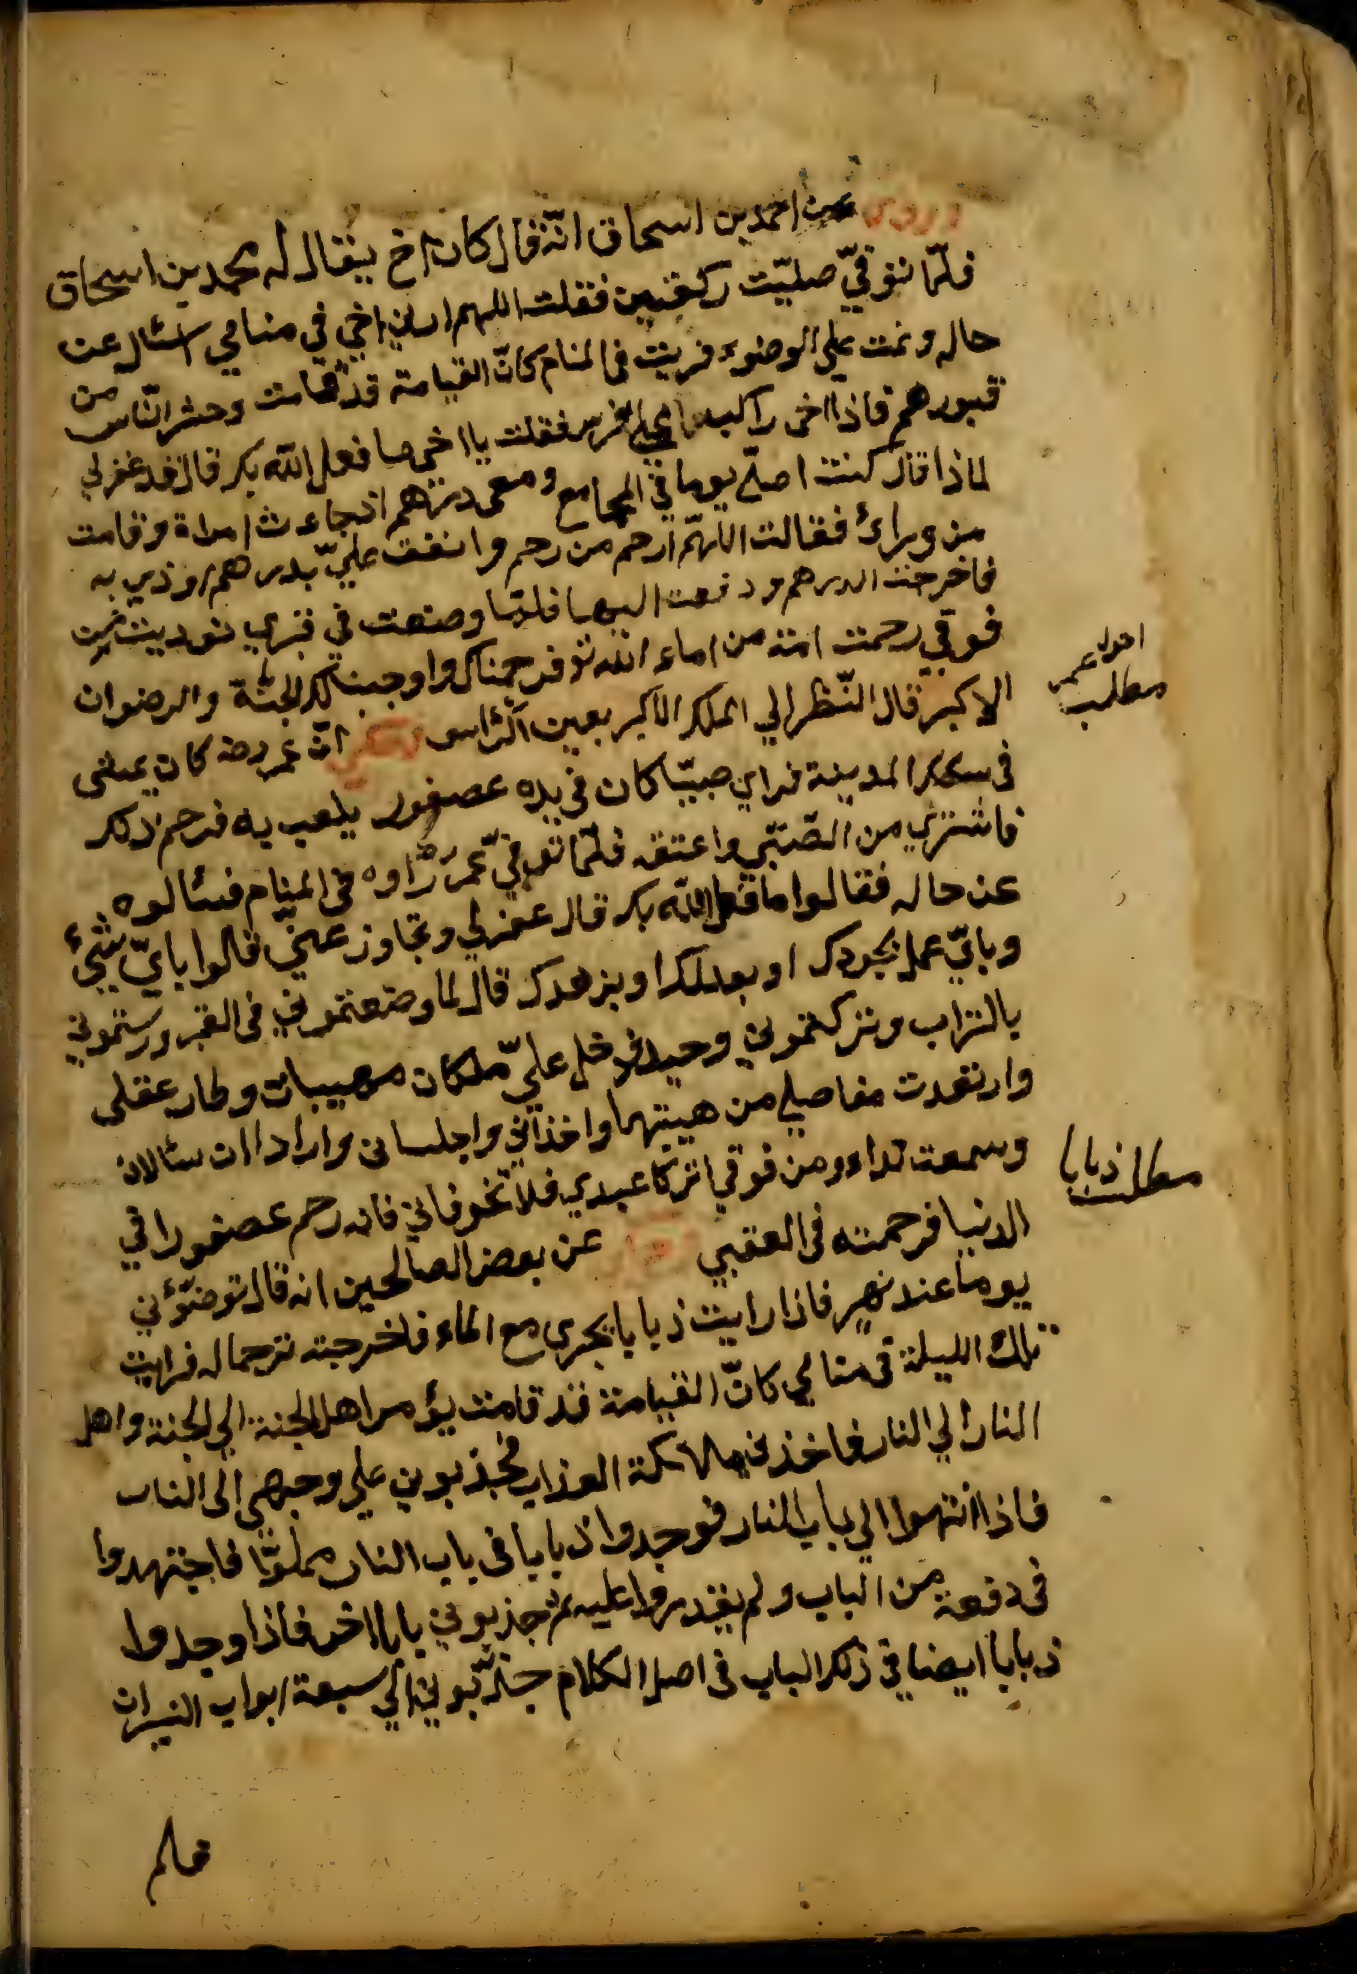 وروي عن احمد بن اسحاق انّه قال كان اخ يقال له محمد بن اسحاق
فلمّا توفيّ صليّت ركعتين فقلت اللهم ارني اخي في منامي اسئال عن
حاله ونمت علي الوضوء فريت في المنام كانّ القيامة قد قامت وحشر النّاس من
قبورهم فاذا اخى راكب علي الفرس فقلت يا اخى ما فعل الله بك قال قد غفرلي
لماذا قال كنت اصلّي يوما في الجامع ومعى درهم اذ جاءت امراة وقامت
من ورائ فقالت اللهّم ارحم من رحم وانفقت عليّ بدرهم
فاخرجت الدرهم ودفعت اليها فلمّا وضعت في قبري نوديت من
فوقي رحمت امة من اماء الله تع فرحمناك واوجبنا لك الجنّة والرضوان
الاكبر قال النّظر الي الملك الاكبر بعين الرّاس وحكي انّ عمر رضه كان يمشى
في سكك المدينة فراي صبيّا كان في يده عصفور يلعب به فرحم ذلك
فاشتري من الصّبّي واعتقه فلمّا توفيّ عمر رّاوه في المنام فسئالوه
عن حاله فقالوا ما فعل الله بك قال غفرلي وتجاوز عنّي قالوا بايّ شئ
وبايّ عمل بجودك او بعدلك او بزهدك قال لما وضعتموني في القبر وسترتموني
بالتراب وتركتموني وحيدا فدخل عليّ ملكان مهيبان وطار عقلي
وارتعدت مفاصلي من هيبتهما واخذاني واجلساني وارادا ان سئالان
وسمعت نداء من فوقي اتركا عبدي فلا تخوفاني فانه رحم عصفورا في
الدنيا فرحمته في العقبي وحكي عن بعض الصالحين انه قال توضّؤني
يوما عند نهر فاذا رايت ذبابا يجري مع الماء فاخرجته ترحما له فرايت
تلك الليلة في منامي كانّ القيامة قد قامت يؤمر اهل الجنة الي الجنة واهل
النار الي النار فاخذني ملائكة العذاب فجذبوني علي وجهي الى النار
فاذا انتهوا الي باب النار فوجدوا ذبابا في باب النار مملوّا فاجتهدوا
في دفعة من الباب ولم يقدروا عليه ثم جذبوني بابا اخر فاذا وجدوا
ذبابا ايضا في ذلك الباب في اصل الكلام جذبّوني الي سبعة ابواب النيران
احوال عمر
مطلب
مطلب ذبابا
فلم